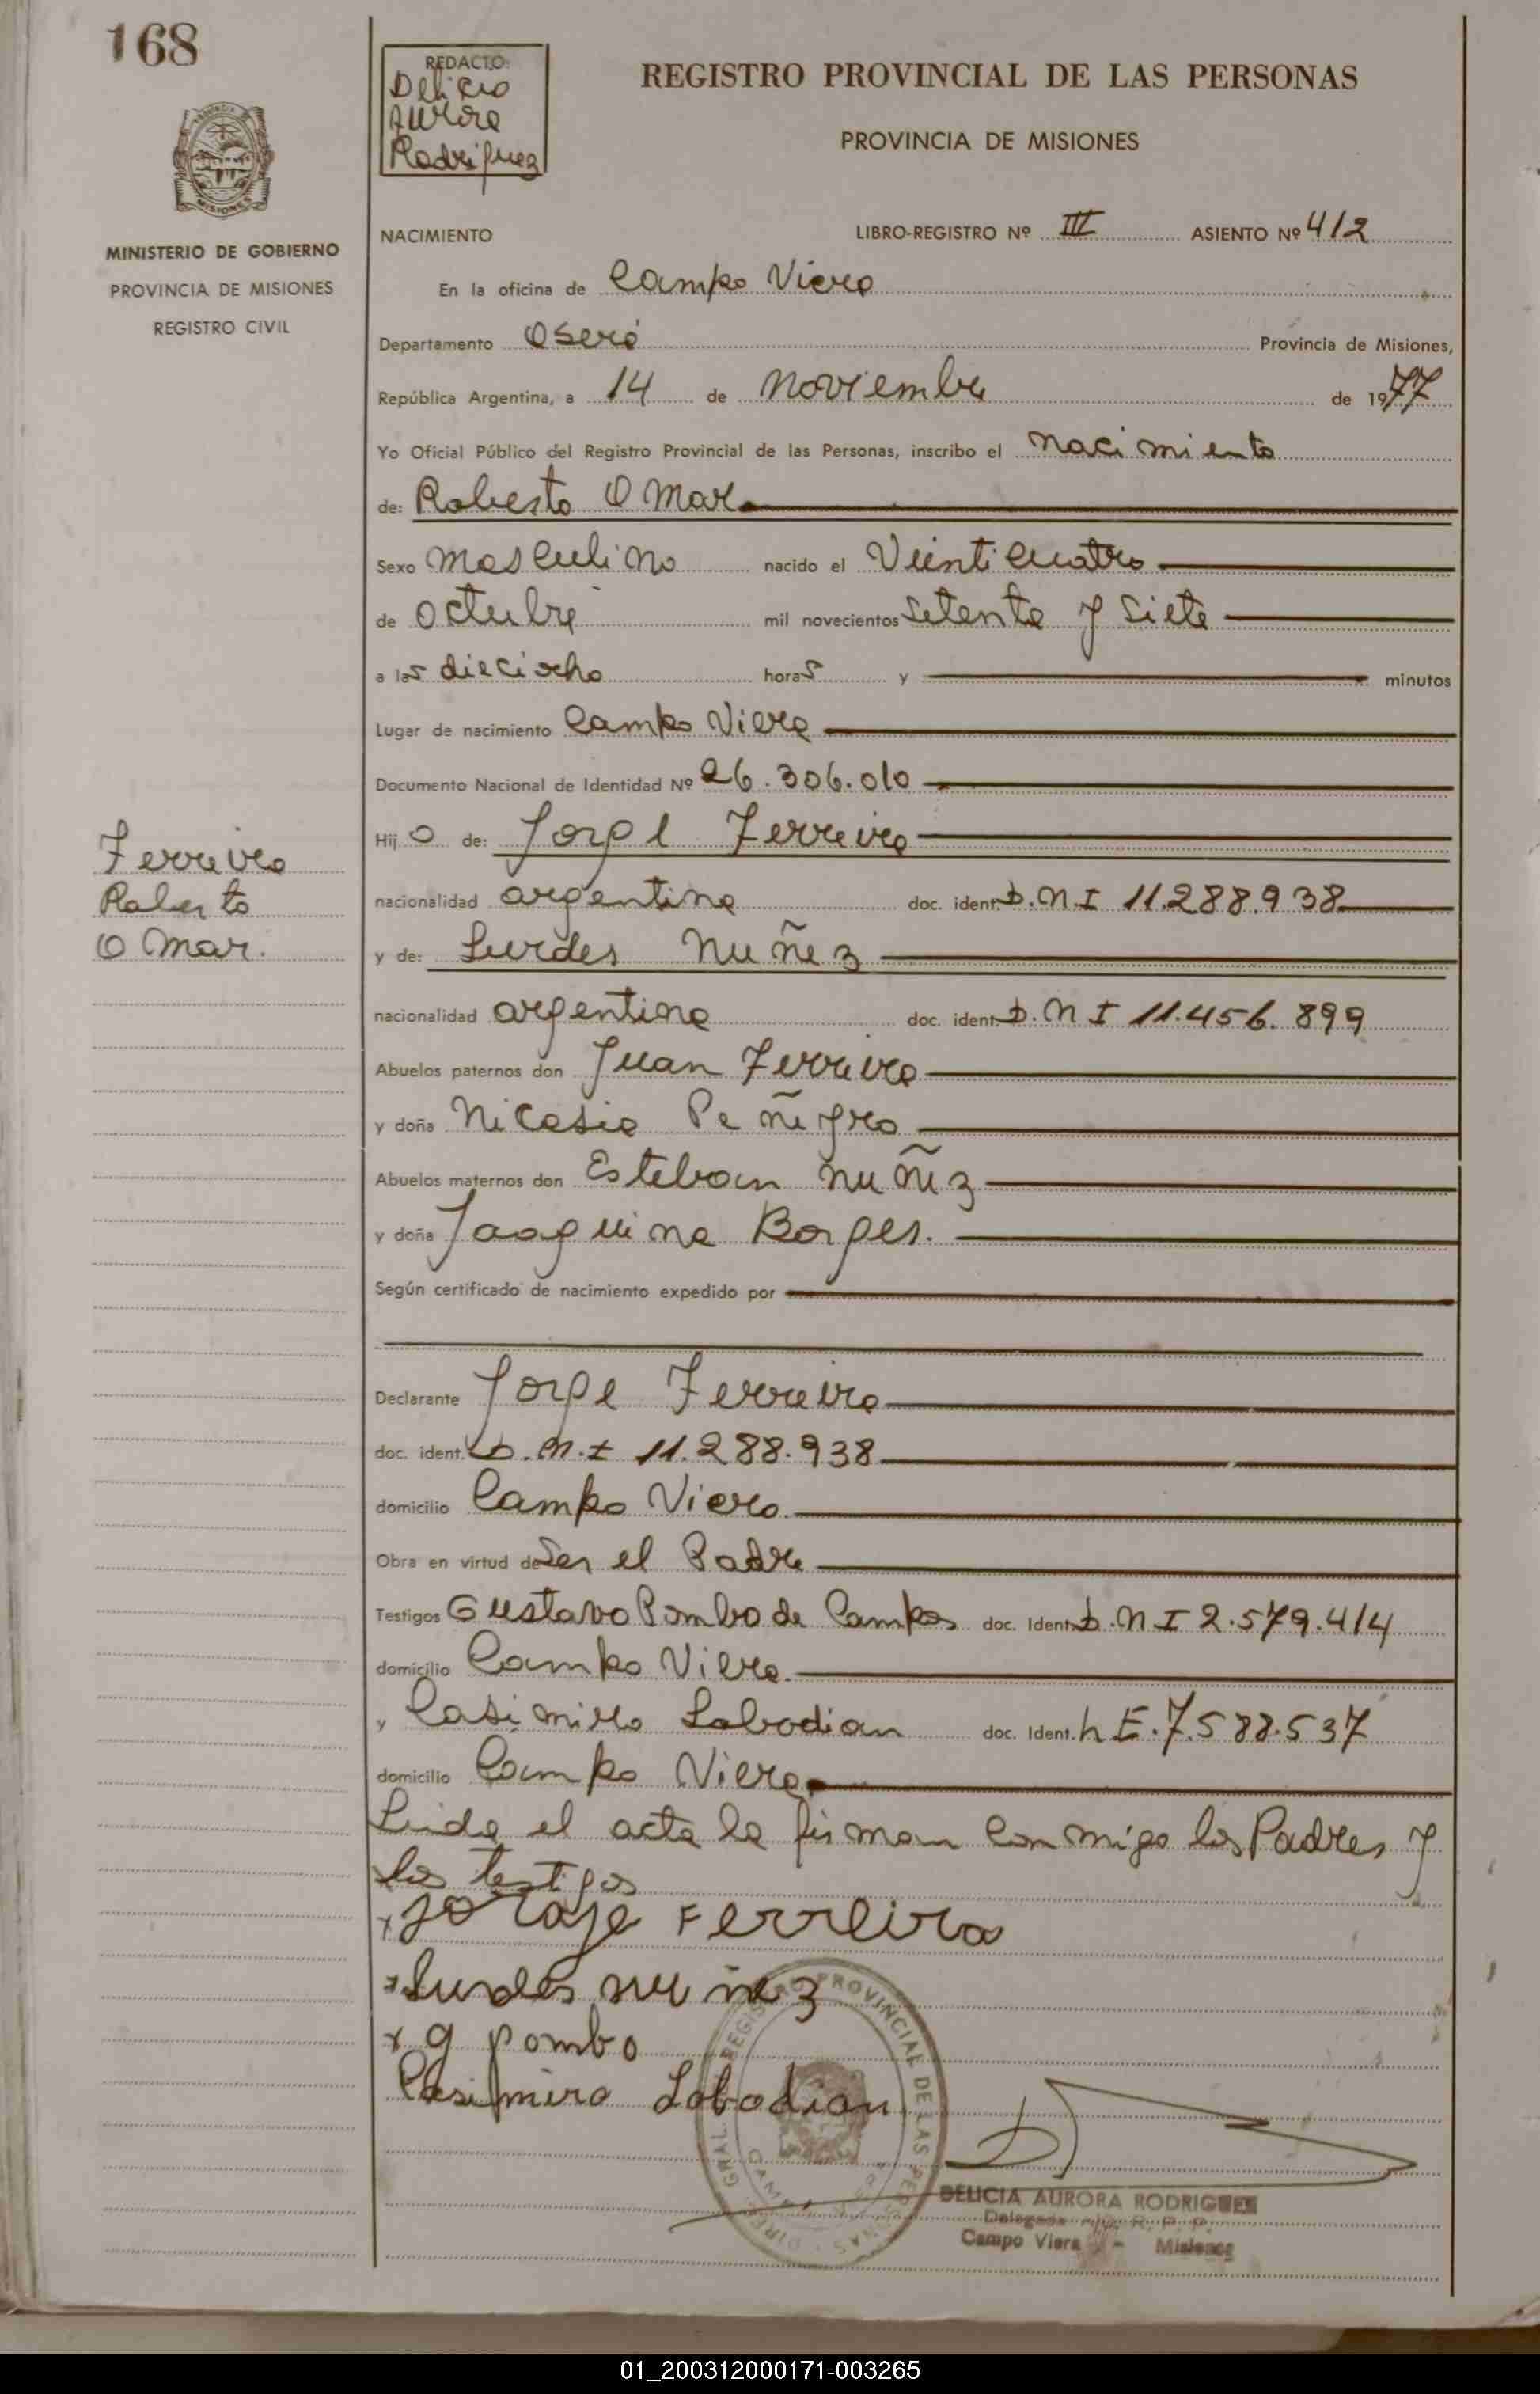 168
REDACTO:
Delicia
Aurora
Rodriguez
REGISTRO PROVINCIAL DE LAS PERSONAS
PROVINCIA DE MISIONES
MISIONES
MINISTERIO DE GOBIERNO
PROVINCIA DE MISIONES
REGISTRO CIVIL
NACIMIENTO LIBRO-REGISTRO Nº III ASIENTO Nº 412
En la oficina de Campo Viera
Departamento Oberá Provincia de Misiones,
República Argentina, a 14 de Noviembre de 1977
Yo Oficial Público del Registro Provincial de las Personas, inscribo el nacimiento
de: Roberto Omar
Sexo masculino nacido el Veinticuatro
de octubre mil novecientos setenta y siete
a las dieciocho horas y minutos
Lugar de nacimiento Campo Viera
Documento Nacional de Identidad Nº 26.306.010
Hijo de: Jorge Ferreira
Ferreira
Roberto
Omar.
nacionalidad argentina doc. ident. D.N.I 11.288.938
y de: Lurdes Nuñez
nacionalidad argentina doc. ident. D.N.I 11.456.899
Abuelos paternos don Juan Ferreira
y doña Nicasia Peñegro
Abuelos maternos don Esteban Nuñez
y doña Joaquina Borges.
Según certificado de nacimiento expedido por
Declarante Jorge Ferreira
doc. ident. D.N.I 11.288.938
domicilio Campo Viera
Obra en virtud de Ser el Padre
Testigos Gustavo Pombo de Campos doc. Ident. D.N.I 2.579.414
domicilio Campo Viera
y Casimiro Labodian doc. Ident. L E.7.588.537
domicilio Campo Viera
Leida el acta la firman conmigo los Padres y
los testigos
x Jo rage Ferreira
x Lurdes nuñez
x g pombo
Casimiro Lobodian
DIREC. GRAL. REGISTRO PROVINCIAL DE LAS PERSONAS
DELICIA AURORA RODRIGUEZ
Delegada R. P. P.
Campo Viera - Misiones
01_200312000171-003265